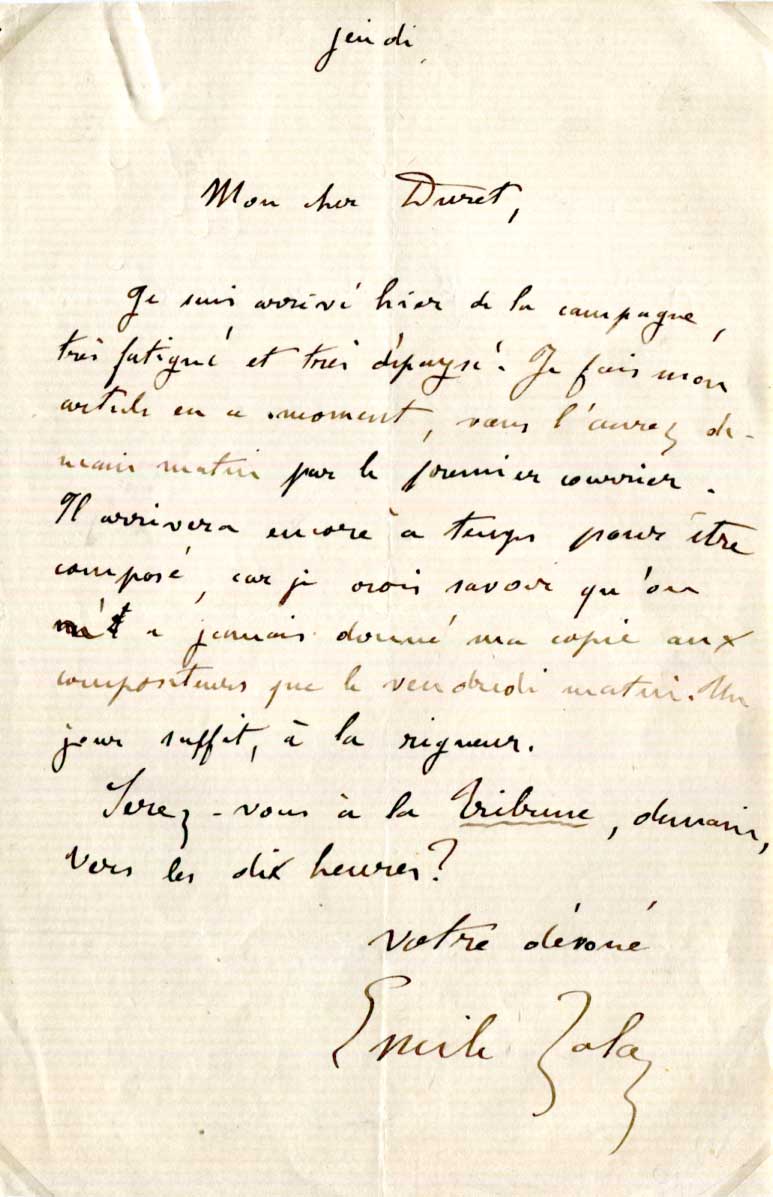 jeudi
Mon cher Duret,
Je suis arrivé hier de la campagne,
très fatigué et très dépaysé. Je fais mon
article en ce moment, vous l'aurez de-
main matin par le premier courrier.
Il arrivera encore à temps pour être
composé, car je crois savoir qu'on
n'a jamais donné ma copie aux
compositeurs que le vendredi matin. Un
jour suffit, à la rigueur.
Serez-vous à la Tribune, demain,
vers les dix heures?
votre dévoué
Emile Zola